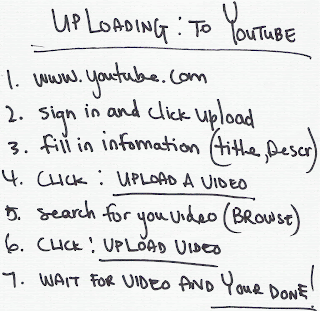 UPLOADING: TO YOUTUBE
1. www.youtube.com
2. sign in and click upload
3. fill in infomation (tithe, Descr)
4. CLICK: UPLOAD A VIDEO
5. search for you video (BROWSE)
6. CLICK: UPLOAD VIDEO
7. WAIT FOR VIDEO AND YOUR DONE!